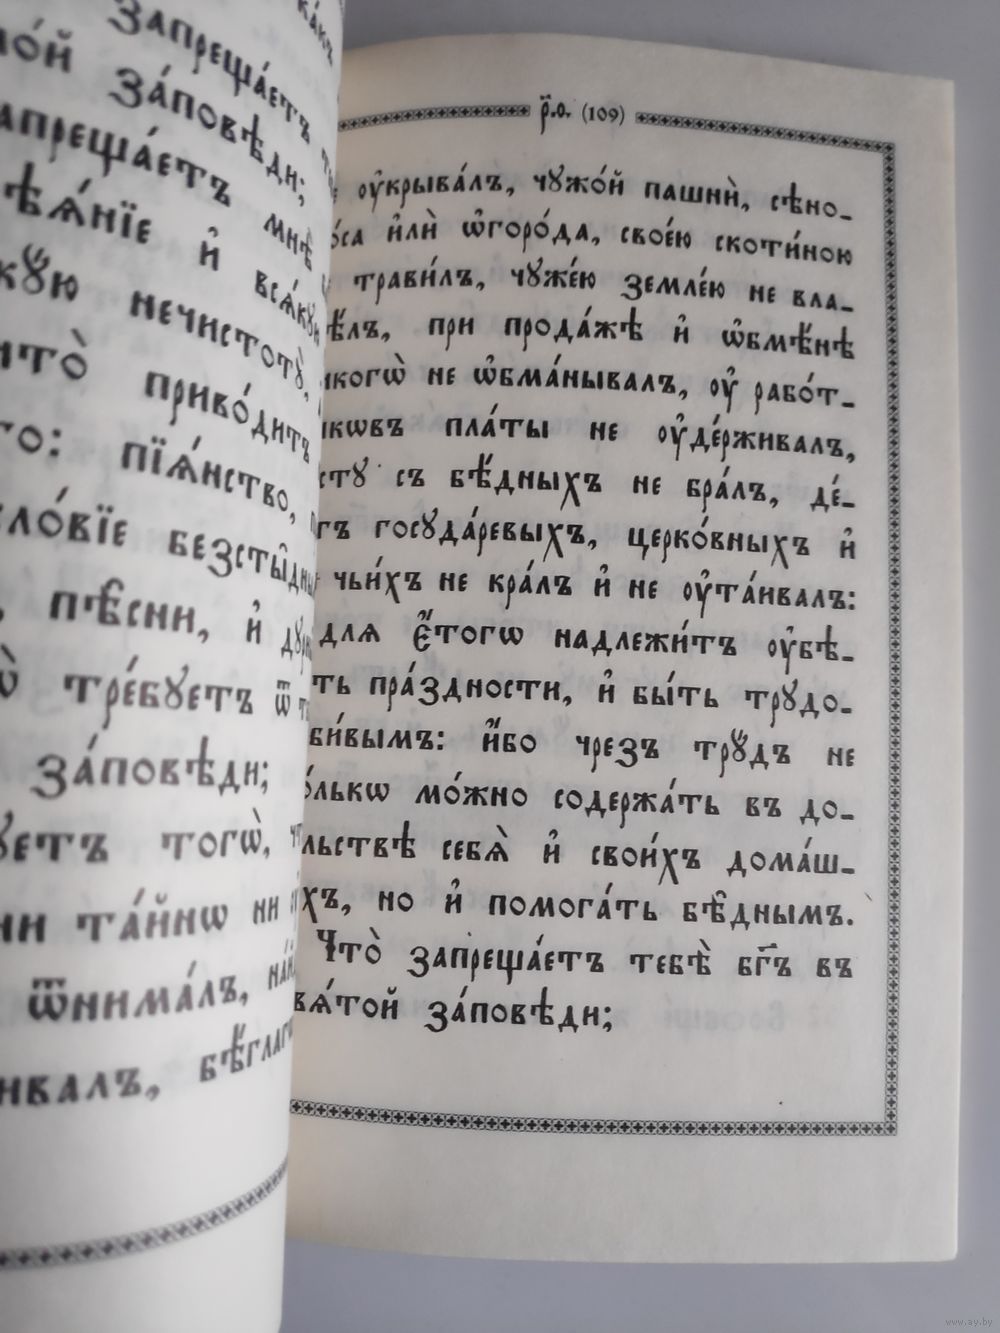 Запреща́етъ
мо́й за́повѣди;
запреща́етъ мнѣ
ѣѧ́нїе и҆ всѧ́кꙋю
кꙋ́ю нечистотꙋ̀,
что̀ приво́дитъ
го: пїѧ́нство,
сло́вїе безсты́дны
, пѣ̑сни, и҆
ѡ̀ тре́бꙋетъ ѿ
за́повѣди;
ꙋетъ тогѡ̀,
ни та́йнѡ ни
ѿнима́лъ,
ивалъ, бѣ́глаго
р҃.ѳ. (109)
ᲂу҆крыва́лъ, чꙋжо́й пашнѝ, сѣно_
о́са и҆лѝ ѡ҆горо́да, свое́ю скоти́ною
трави́лъ, чꙋже́ю земле́ю не вла_
ѣ́лъ, при прода́жѣ и҆ ѡ҆бмѣ́нѣ
никогѡ̀ не ѡ҆бма́нывалъ, ᲂу҆ рабо́т_
никѡвъ пла́ты не ᲂу҆де́рживалъ,
стꙋ съ бѣ́дныхъ не бра́лъ, де́_
гъ госꙋда́ревыхъ, церко́вныхъ и҆
чьи́хъ не кра́лъ и҆ не ᲂу҆та́ивалъ:
для є҆́тогѡ надлежи́тъ ᲂу҆бѣ_
ть пра́здности, и҆ бы́ть трꙋдо_
би́вымъ: и҆́бо чрезъ трꙋ́дъ не
о́лькѡ мо́жно содержа́ть въ до_
льствѣ себѧ̀ и҆ свои́хъ дома́ш_
хъ, но и҆ помога́ть бѣ̑днымъ.
Что̀ запреща́етъ тебѣ̀ бг҃ъ въ
вѧ́той за́повѣди;
www.ay.by